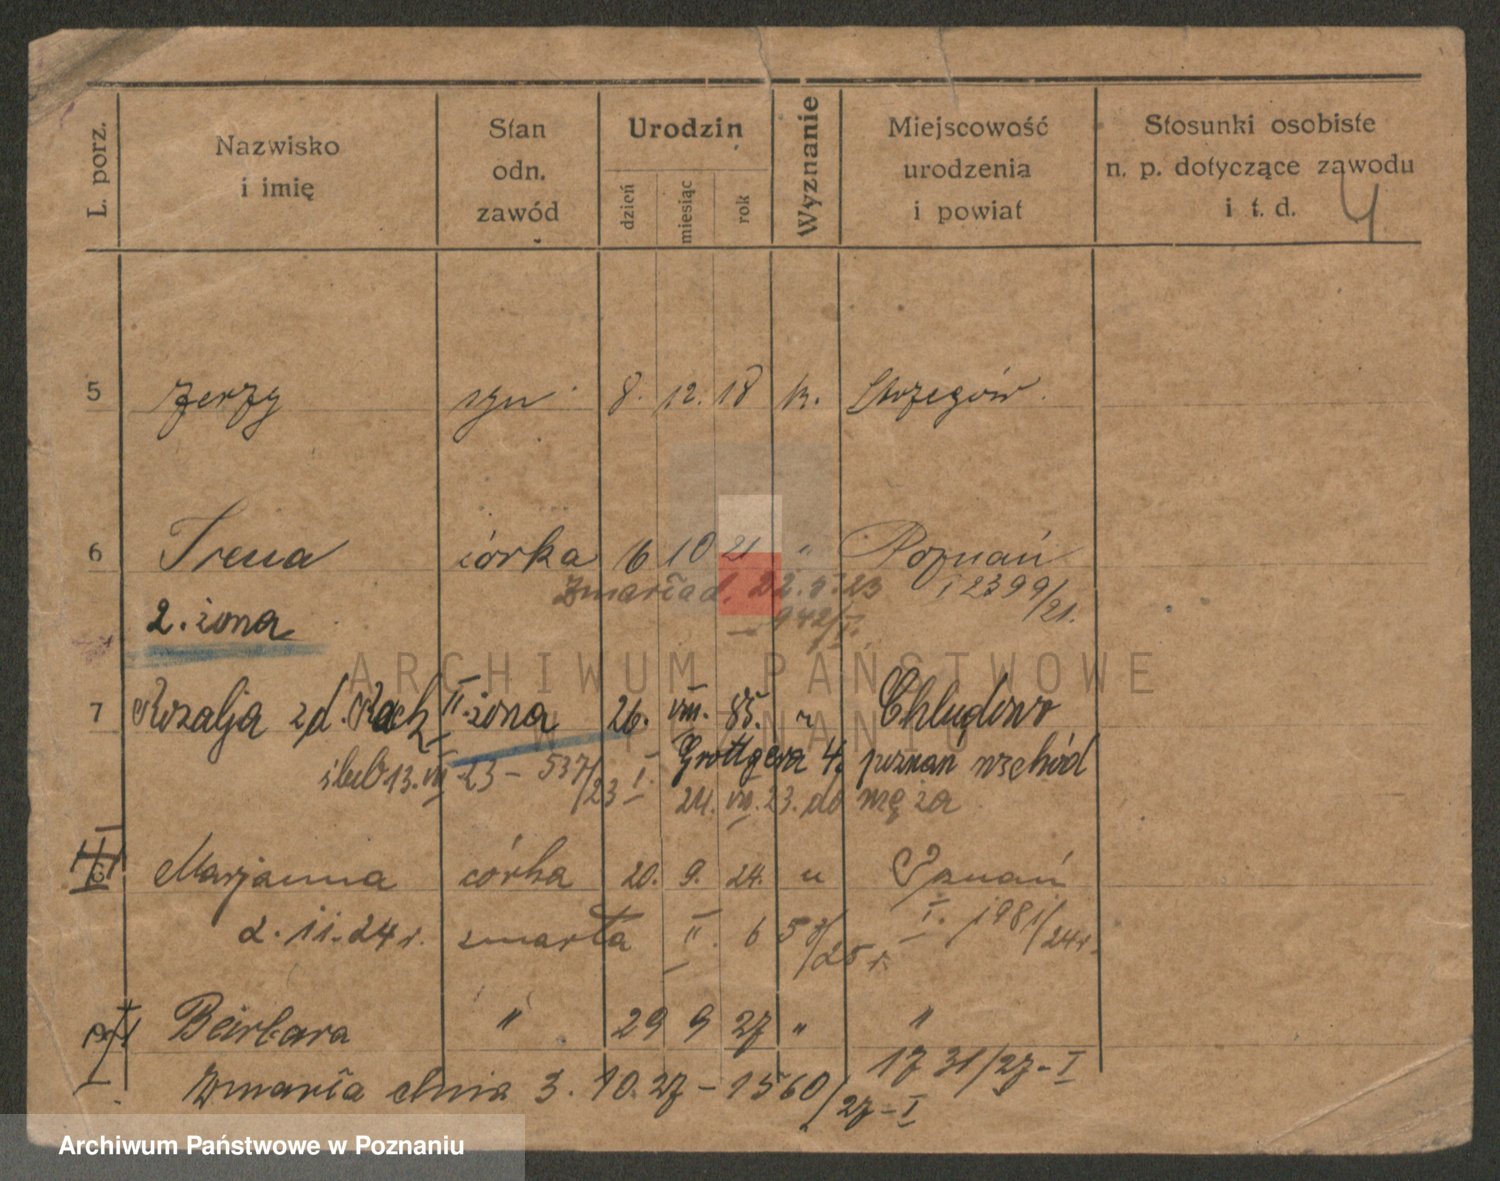 L. porz. Nazwisko i imię Stan odn. zawód Urodzin dzień miesiąc rok Wyznanie Miejscowość urodzenia i powiat Stosunki osobiste n. p. dotyczące zawodu i t. d.
4
5 Jerzy syn 8. 12. 18 k. Strzegów.
6 Irena córka 6 10 21 " Poznań
Zmarła d. 22. I. 23 I 2399/21.
942/I.
2. żona
ARCHIWUM PAŃSTWOWE
W POZNANIU
7 Rozalja zd. Koch II. żona 26. VIII. 85. " Chludowo
ślub 13. VII 23 - 537/23 I. Grottgera 4. poznań wschód
24. VII. 23. do męża
Marjanna córka 20. 9. 24. " Poznań
2. 11. 24 r. zmarła II. 658/25 r. I. 1981/24 r.
Barbara " 29 9 27 " "
1731/27-I
Zmarła dnia 3. 10. 27 - 1560/27-I
Archiwum Państwowe w Poznaniu